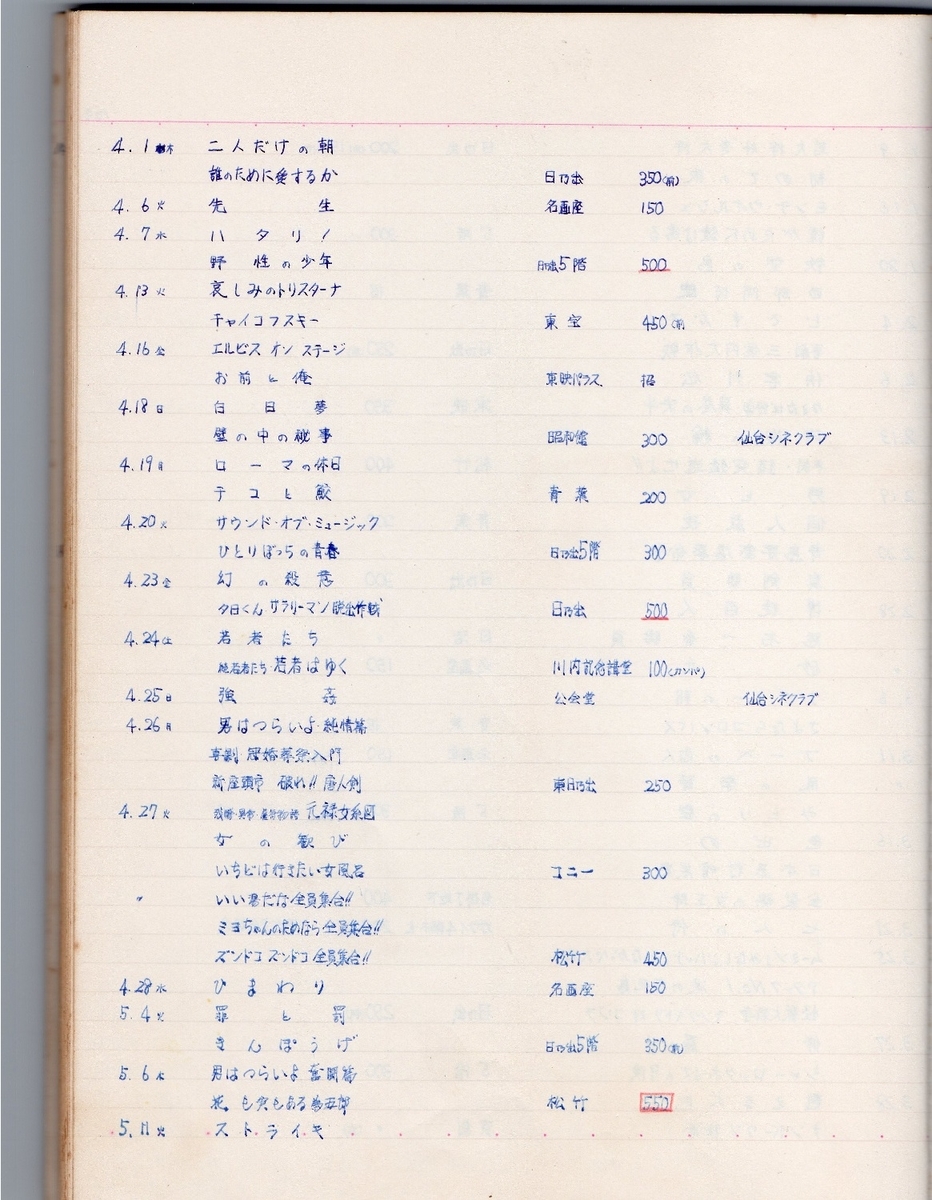 4. 1 木 二人だけの朝
誰のために愛するか 日乃出 350(前)
4. 6 火 先生 名画座 150
4. 7 水 ハタリ!
野性の少年 日乃出5階 500
4. 13 火 哀しみのトリスターナ
チャイコフスキー 東宝 450(前)
4. 16 金 エルビス オン ステージ
お前と俺 東映パラス 招
4. 18 日 白日夢
壁の中の秘事 昭和館 300 仙台シネクラブ
4. 19 月 ローマの休日
テコと鮫 青葉 200
4. 20 火 サウンド・オブ・ミュージック
ひとりぼっちの青春 日乃出5階 300
4. 23 金 幻の殺意
夕日くん サラリーマン脱出作戦 日乃出 500
4. 24 土 若者たち
続若者たち 若者はゆく 川内記念講堂 100(カンパ)
4. 25 日 強姦 公会堂 仙台シネクラブ
4. 26 月 男はつらいよ・純情篇
喜劇・冠婚葬祭入門
新座頭市 破れ!! 唐人剣 東日乃出 250
4. 27 火 元禄女系図
女の歓び
いちどは行きたい女風呂 コニー 300
〃 いい湯だな 全員集合!!
ミヨちゃんのためなら 全員集合!!
ズンドコ ズンドコ 全員集合!! 松竹 450
4. 28 水 ひまわり 名画座 150
5. 4 火 罪と罰
きんぽうげ 日乃出5階 350(前)
5. 6 木 男はつらいよ 奮闘篇
花も実もある為五郎 松竹 550
5. 11 火 ストライキ